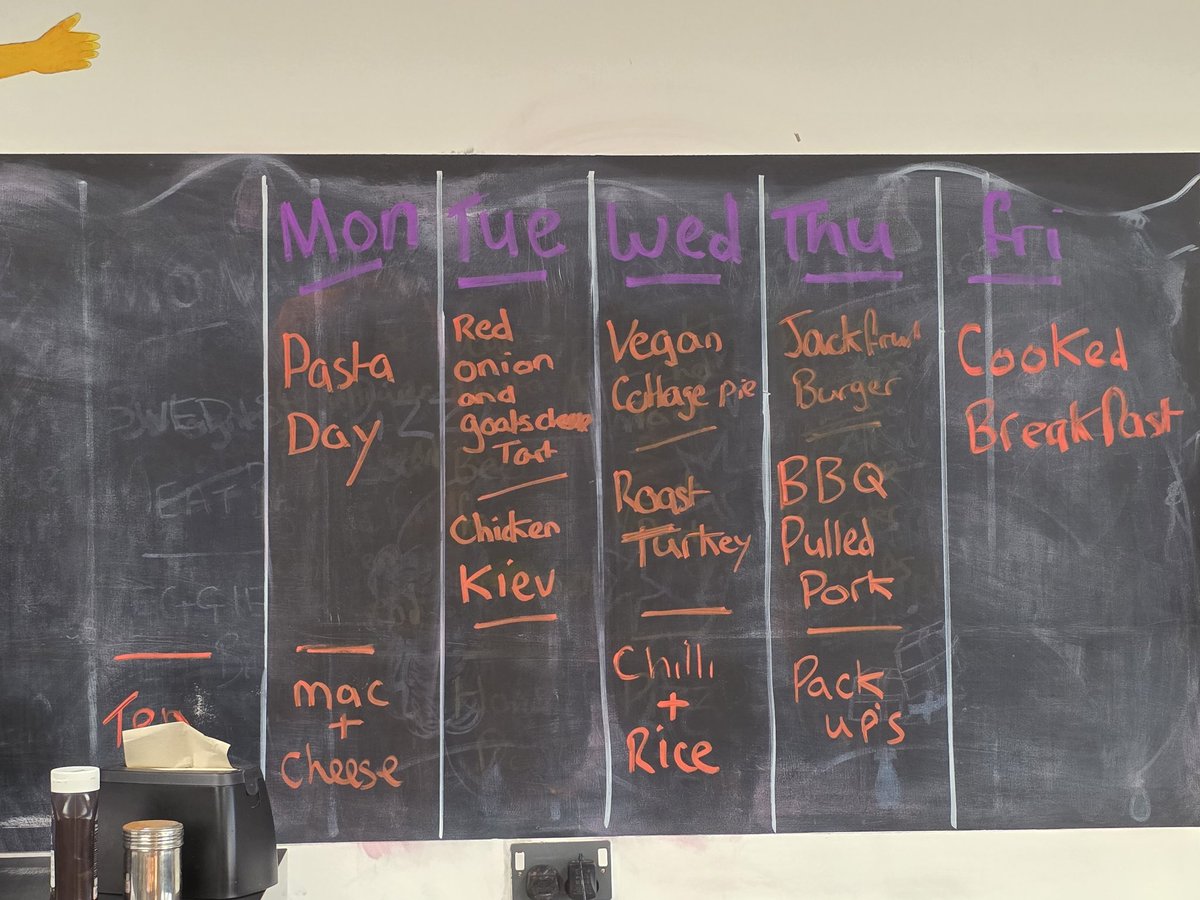 Mon
Pasta
Day
mac
+
Cheese
Tue
Red
onion
and
goatscheese
Tart
Chicken
Kiev
Wed
Vegan
Cottage pie
Roast
Turkey
Chilli
+
Rice
Thu
Jackfruit
Burger
BBQ
Pulled
Pork
Pack
up's
Fri
Cooked
Breakfast